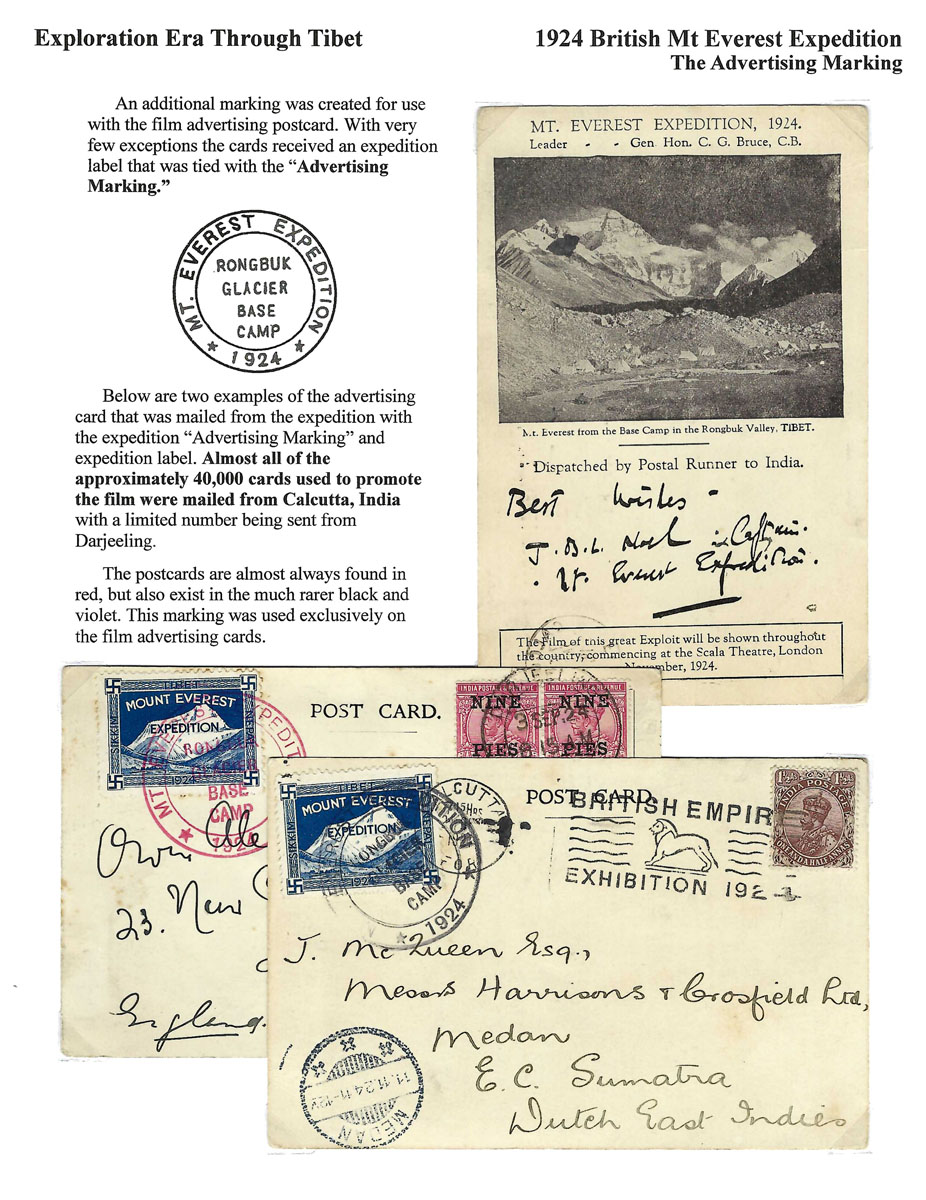 Exploration Era Through Tibet
1924 British Mt Everest Expedition
The Advertising Marking
An additional marking was created for use
with the film advertising postcard. With very
few exceptions the cards received an expedition
label that was tied with the “Advertising
Marking.”
MT. EVEREST EXPEDITION
RONGBUK
GLACIER
BASE
CAMP
1924
Below are two examples of the advertising
card that was mailed from the expedition with
the expedition “Advertising Marking” and
expedition label. Almost all of the
approximately 40,000 cards used to promote
the film were mailed from Calcutta, India
with a limited number being sent from
Darjeeling.
The postcards are almost always found in
red, but also exist in the much rarer black and
violet. This marking was used exclusively on
the film advertising cards.
MT. EVEREST EXPEDITION, 1924.
Leader - - Gen. Hon. C. G. Bruce, C.B.
Mt. Everest from the Base Camp in the Rongbuk Valley, TIBET.
Dispatched by Postal Runner to India.
Best Wishes -
J. B. L. Noel Captain.
Mt. Everest Expedition.
The Film of this great Exploit will be shown throughout
the country, commencing at the Scala Theatre, London
November, 1924.
TIBET
MOUNT EVEREST
EXPEDITION
1924
SIKKIM
NEPAL
BASE
CAMP
1924
POST CARD.
INDIA POSTAGE & REVENUE
INDIA POSTAGE & REVENUE
NINE
PIES
NINE
PIES
23. New
England.
TIBET
MOUNT EVEREST
EXPEDITION
1924
SIKKIM
BASE
CAMP
1924
CUTTA
POST CARD.
BRITISH EMPIR
EXHIBITION 192
INDIA POSTAGE
1½A 1½A
J. McQueen Esq.,
Messrs Harrisons & Crosfield Ltd,
Medan
E. C. Sumatra
Dutch East Indies
11.11.24.11-12V
MEDAN